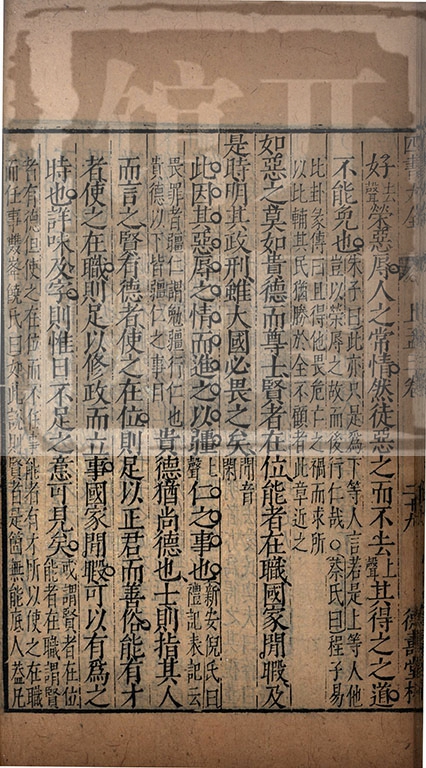 四書大全
德壽堂梓
好去聲榮惡辱人之常情然徒惡之而不去上聲其得之之道
不能免也朱子曰此亦只是為下等人言若是上等人他
豈以榮辱之故而後行仁哉。蔡氏曰程子易
比卦彖傳曰且得他畏危亡之禍而求所
以比輔其民猶勝於全不顧者此章近之
如惡之莫如貴德而尊士賢者在位能者在職國家閒暇及
是時明其政刑雖大國必畏之矣閒音閑
此因其惡辱之情而進之以彊上聲仁之事也新安倪氏曰
禮記表記云
畏罪者彊仁謂勉彊行仁也
貴德以下皆彊仁之事
貴德猶尚德也士則指其人
而言之賢有德者使之在位則足以正君而善俗能有才
者使之在職則足以修政而立事國家閒暇可以有為之
時也詳味及字則惟日不足之意可見矣或謂賢者在位
能者在職謂賢
者有德但使之在位而不任事能者有才所以使之在職
而任事雙峯饒氏曰如此說則賢者是箇無能底人蓋凡